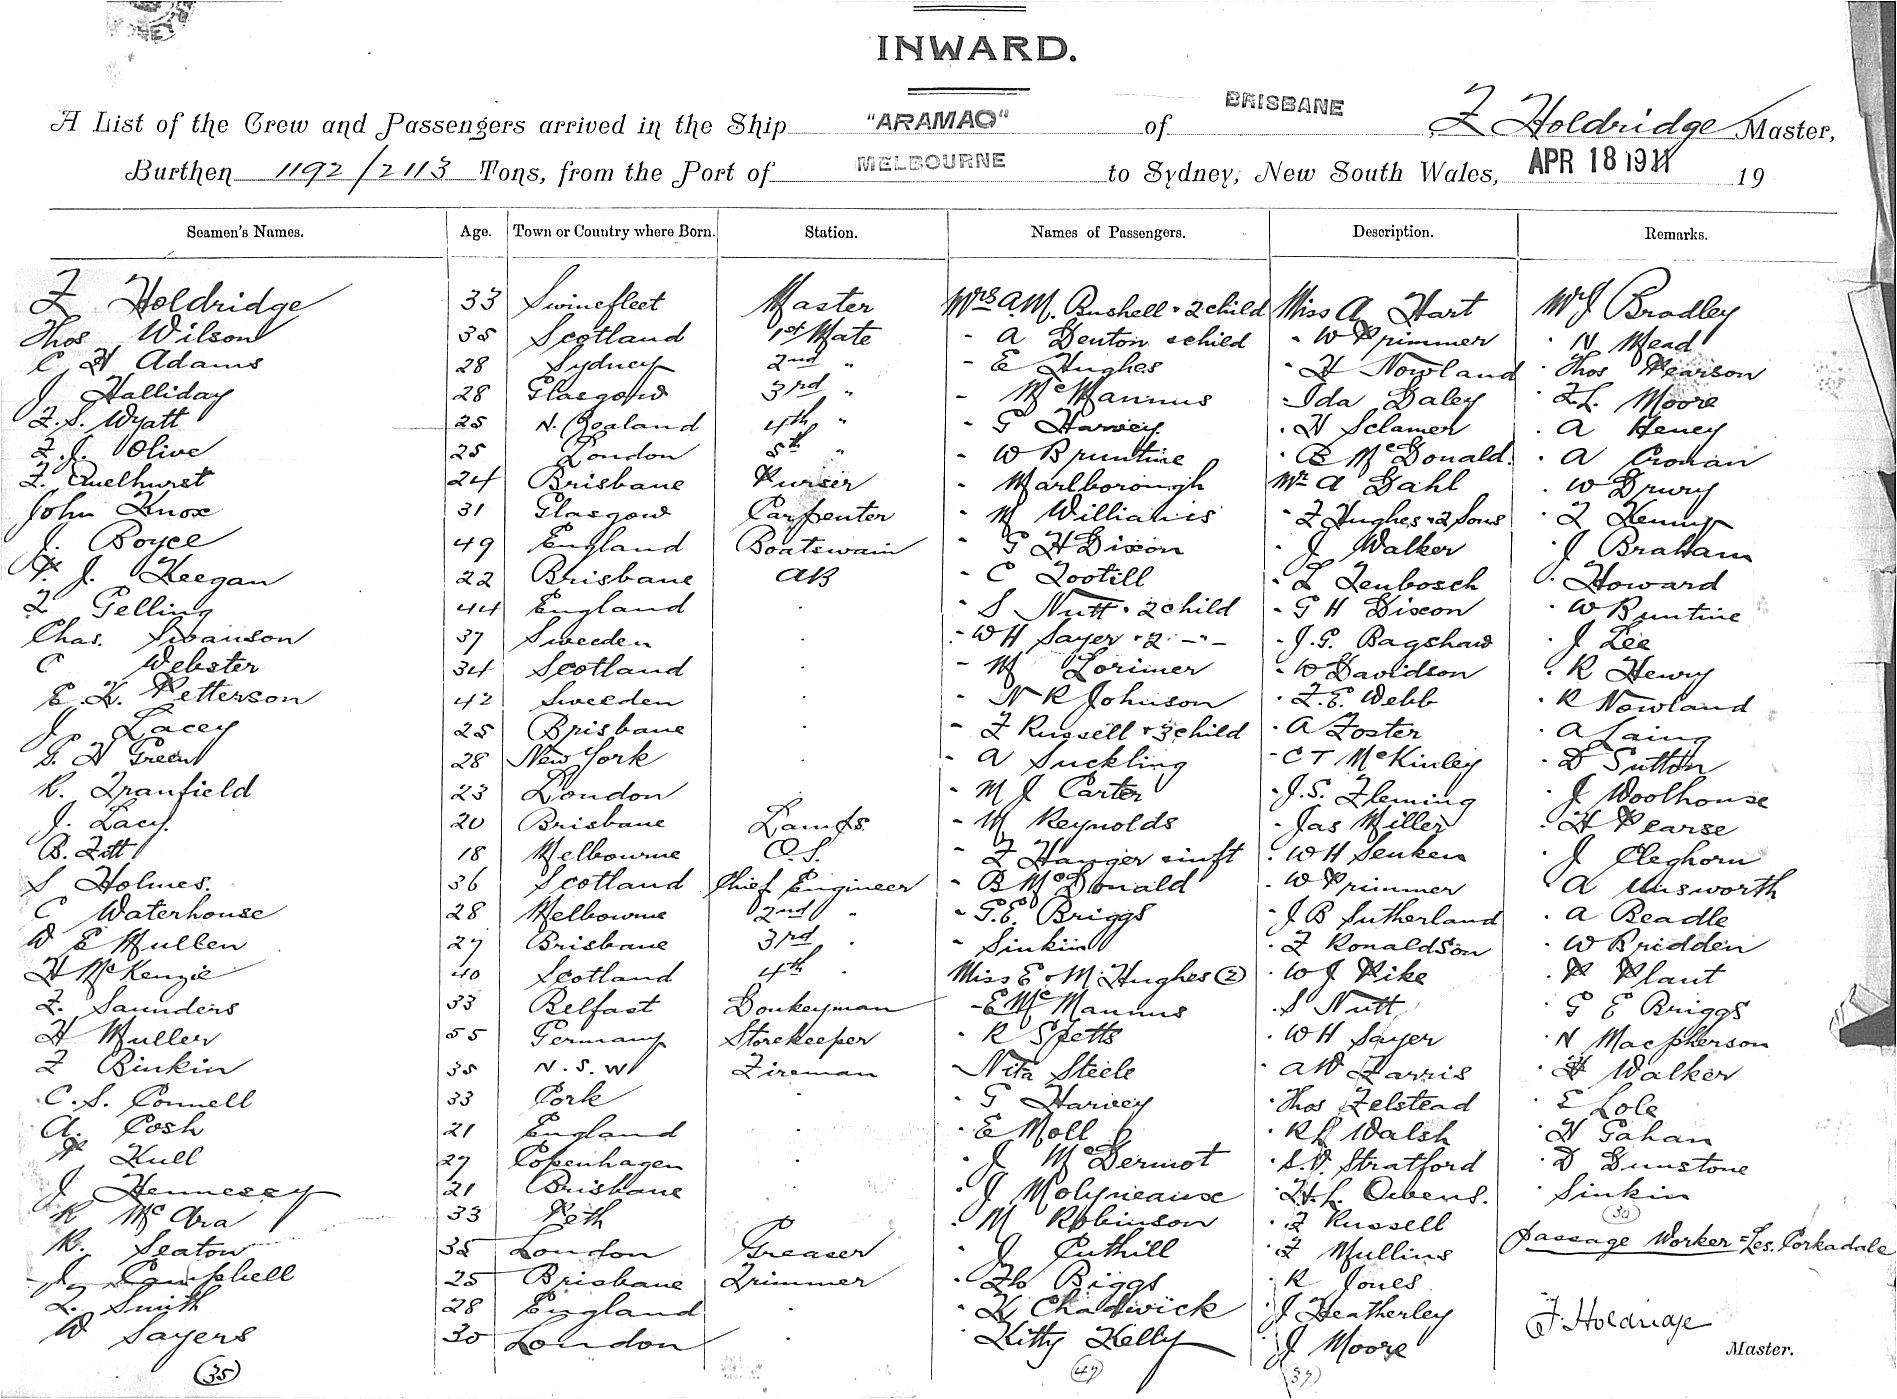 INWARD.
A List of the Crew and Passengers arrived in the Ship "ARAMAO" of BRISBANE, F Holdridge Master,
Burthen 1192/2113 Tons, from the Port of MELBOURNE to Sydney, New South Wales, APR 18 1911 19
Seamen's Names. Age. Town or Country where Born. Station. Names of Passengers. Description. Remarks.
F Holdridge 33 Swinefleet Master Mrs A.M. Bushell & 2 child Miss A Hart Mr J Bradley
Thos Wilson 35 Scotland 1st Mate - A Denton & child - W Primmer - N Mead
C H Adams 28 Sydney 2nd " - E Hughes - H Nowland - Thos Pearson
J Halliday 28 Glasgow 3rd " - McMannus - Ida Daley - F.L. Moore
F.S. Wyatt 25 N. Zealand 4th " - G Harvey - H Sclamer - A Heney
F.J. Olive 25 London 5th " - W Bruntine - B McDonald - A Cronan
F. Quelhurst 24 Brisbane Purser - Marlborough Mr A Dahl - W Drury
John Knox 31 Glasgow Carpenter - M Williams - F Hughes & 2 Sons - F
J. Boyce 49 England Boatswain - G H Dixon - J Walker - J Braham
P. J. Keegan 22 Brisbane AB - C Tootill - L Tenbosch - Howard
F Gelling 44 England - S Nutt & 2 child - G H Dixon - W Buntine
Chas. Swanson 37 Sweeden - W H Sayer & 2 -"- - J.G. Bagshaw - J Lee
C Webster 34 Scotland - M Lorimer - W Davidson - R Henry
E. H. Petterson 42 Sweeden - N R Johnson - F.E. Webb - R Nowland
J Lacey 25 Brisbane - F Russell & 3 child - A Foster - A Laing
G. H Green 28 New York - A Suckling - C T McKinley - D Sutton
R. Tranfield 23 London - M J Carter - J.S. Fleming - J Woolhouse
J. Lacy. 20 Brisbane Lamps - M Reynolds - Jas Miller - H Pearse
B. Fitt 18 Melbourne O.S. - F Hanger & inft - W H Senken - J Cleghorn
S Holmes. 36 Scotland Chief Engineer - B McDonald - W Primmer - A Unsworth
C Waterhouse 28 Melbourne 2nd " - G.E. Briggs - J B Sutherland - A Beadle
W E Mullen 27 Brisbane 3rd " - Sinkin - F Ronaldson - W Bridden
H McKenzie 40 Scotland 4th " Miss E & M Hughes (2) - W J Pike - P Plant
F. Saunders 33 Belfast Donkeyman - E McMannus - S Nutt - G E Briggs
H Muller 55 Germany Storekeeper - R Spetts - W H Sayer - N Macpherson
F Binkin 35 N.S.W Fireman - Nita Steele - A W Farris - H Walker
C.S. Connell 33 Cork - G Harvey - Thos Felstead - E Lole
A. Cosh 21 England - E Moll - R L Walsh - H Gahan
P Kull 27 Copenhagen - J McDermot - S.V. Stratford - D Dunstone
J Hennesey 21 Brisbane - J Molyneaux - H.L. Owens. - Sinkin
R McAra 33 Peth - M Robinson - F Russell (30)
R. Seaton 35 London Greaser - J Cuthill - F Mullins Passage Worker = Les. Corkadale
J. Campbell 25 Brisbane Trimmer - Flo Biggs - R Jones
F. Smith 28 England - K Chadwick - J Heatherley F. Holdridge
W Sayers 30 London - Kitty Kelly - J Moore Master.
(35) (47) (37)